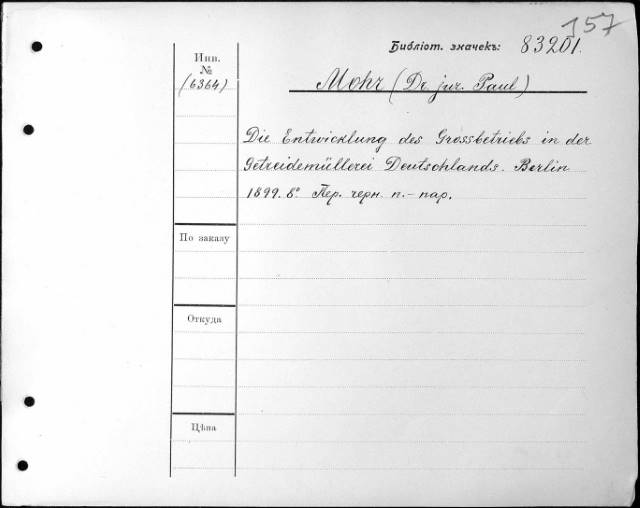 157
Библіот. значекъ: 83201.
Инв.
№
(6364)
Mohr (Dr. jur. Paul)
Die Entwicklung des Grossbetriebs in der
Getreidemüllerei Deutschlands. Berlin
1899. 8º. Пер. черн. п.-пар.
По заказу
Откуда
Цѣна